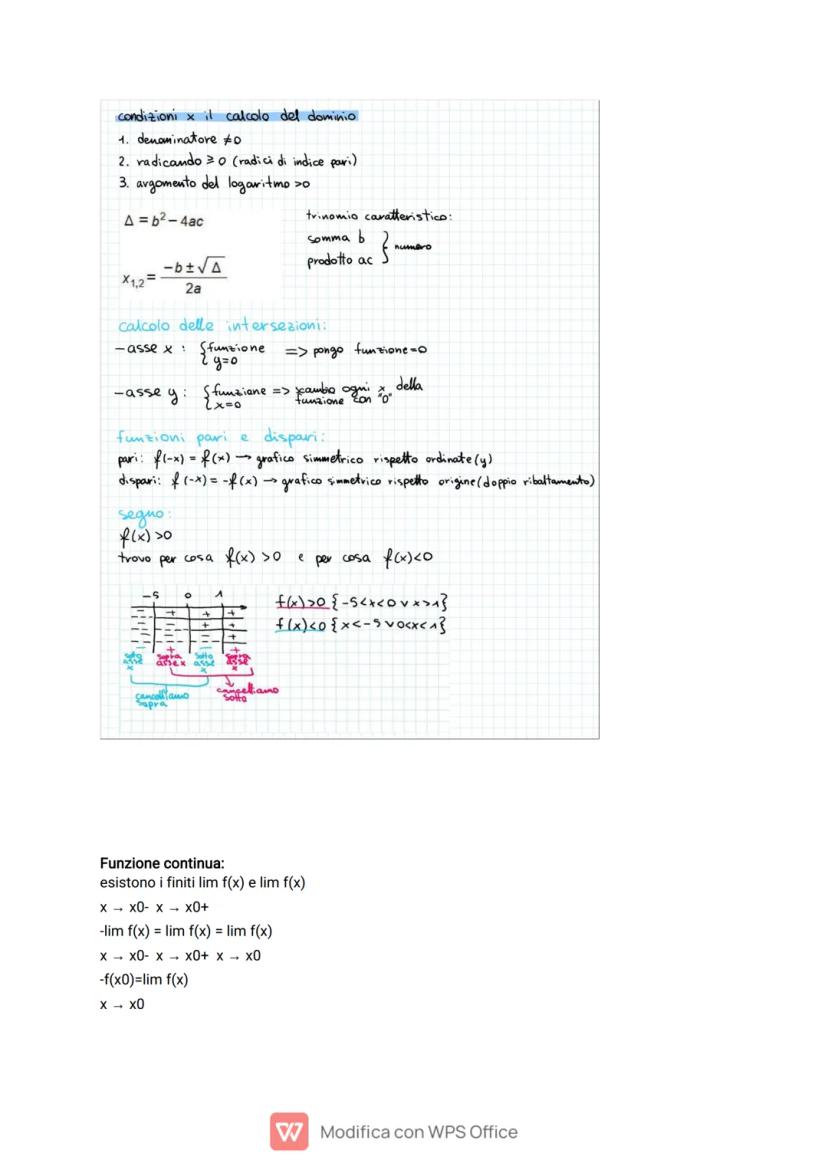 condizioni x il calcolo del dominio
1. denominatore ≠0
2. radicando ≥0 (radici di indice pari)
3. argomento del logaritmo >0
Δ = b² – 4ac
x₁,₂ = (–b ± √Δ) / 2a
trinomio caratteristico:
somma b
prodotto ac } numero
calcolo delle intersezioni:
-asse x : { funzione => pongo funzione=0
y=0
-asse y : { funzione => scambio ogni x della
x=0 funzione con "0"
funzioni pari e dispari:
pari: f(-x) = f(x) → grafico simmetrico rispetto ordinate(y)
dispari: f(-x) = -f(x) → grafico simmetrico rispetto origine(doppio ribaltamento)
segno:
f(x) >0
trovo per cosa f(x) >0 e per cosa f(x)<0
-5 0 1
f(x)>0 {-5<x<0 v x>1}
f(x)<0 {x<-5 v 0<x<1}
– + – +
sotto asse x sopra asse x sotto asse x sopra asse x
cancelliamo sopra
cancelliamo sotto
Funzione continua:
esistono i finiti lim f(x) e lim f(x)
x → x0- x → x0+
-lim f(x) = lim f(x) = lim f(x)
x → x0- x → x0+ x → x0
-f(x0)=lim f(x)
x → x0
Modifica con WPS Office